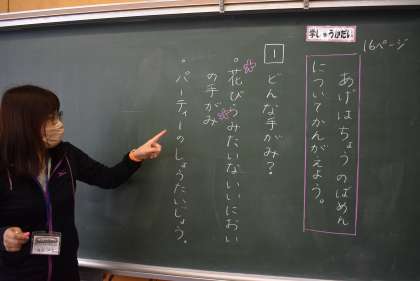 16ページ
学しゅうかだい
あげはちょうのばめん
についてかんがえよう。
1
どんな手がみ?
・花びらみたいないいにおい
の手がみ
・パーティーのしょうたいじょう。